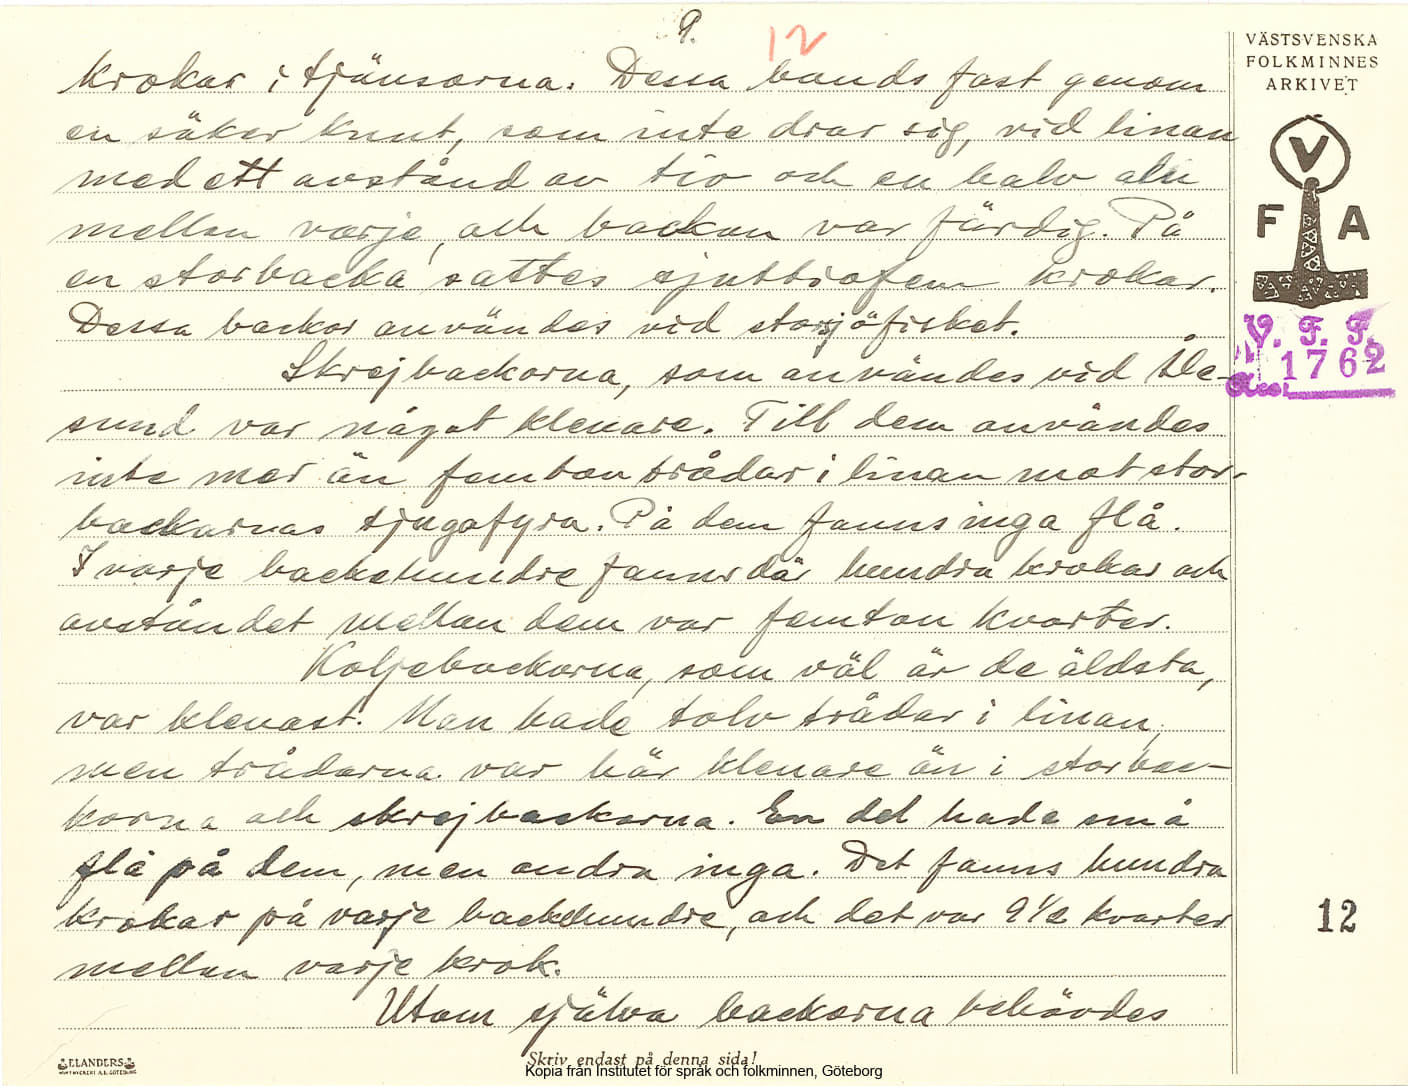 9.
12
krokar i tjänsorna. Dessa bands fast genom
en säker knut, som inte drar sig, vid linan
med ett avstånd av tio och en halv aln
mellan varje, och backan var färdig. På
en storbacka sattes sjuttiofem krokar.
Dessa backor användes vid storsjöfisket.
Skrejbackorna, som användes vid Åle-
sund var något klenare. Till dem användes
inte mer än femton trådar i linan mot stor-
backornas tjugofyra. På dem fanns inga flå.
I varje backehundre fanns där hundra krokar och
avståndet mellan dem var femton kvarter.
Koljebackorna, som väl är de äldsta,
var klenast. Man hade tolv trådar i linan,
men trådarna var här klenare än i storbac-
korna och skrejbackorna. En del hade små
flå på dem, men andra inga. Det fanns hundra
krokar på varje backehundre, och det var 9 1/2 kvarter
mellan varje krok.
Utom själva backorna behövdes
VÄSTSVENSKA
FOLKMINNES
ARKIVET
V
F A
V. F. F.
1762
12
ELANDERS
Skriv endast på denna sida!
Kopia från Institutet för språk och folkminnen, Göteborg